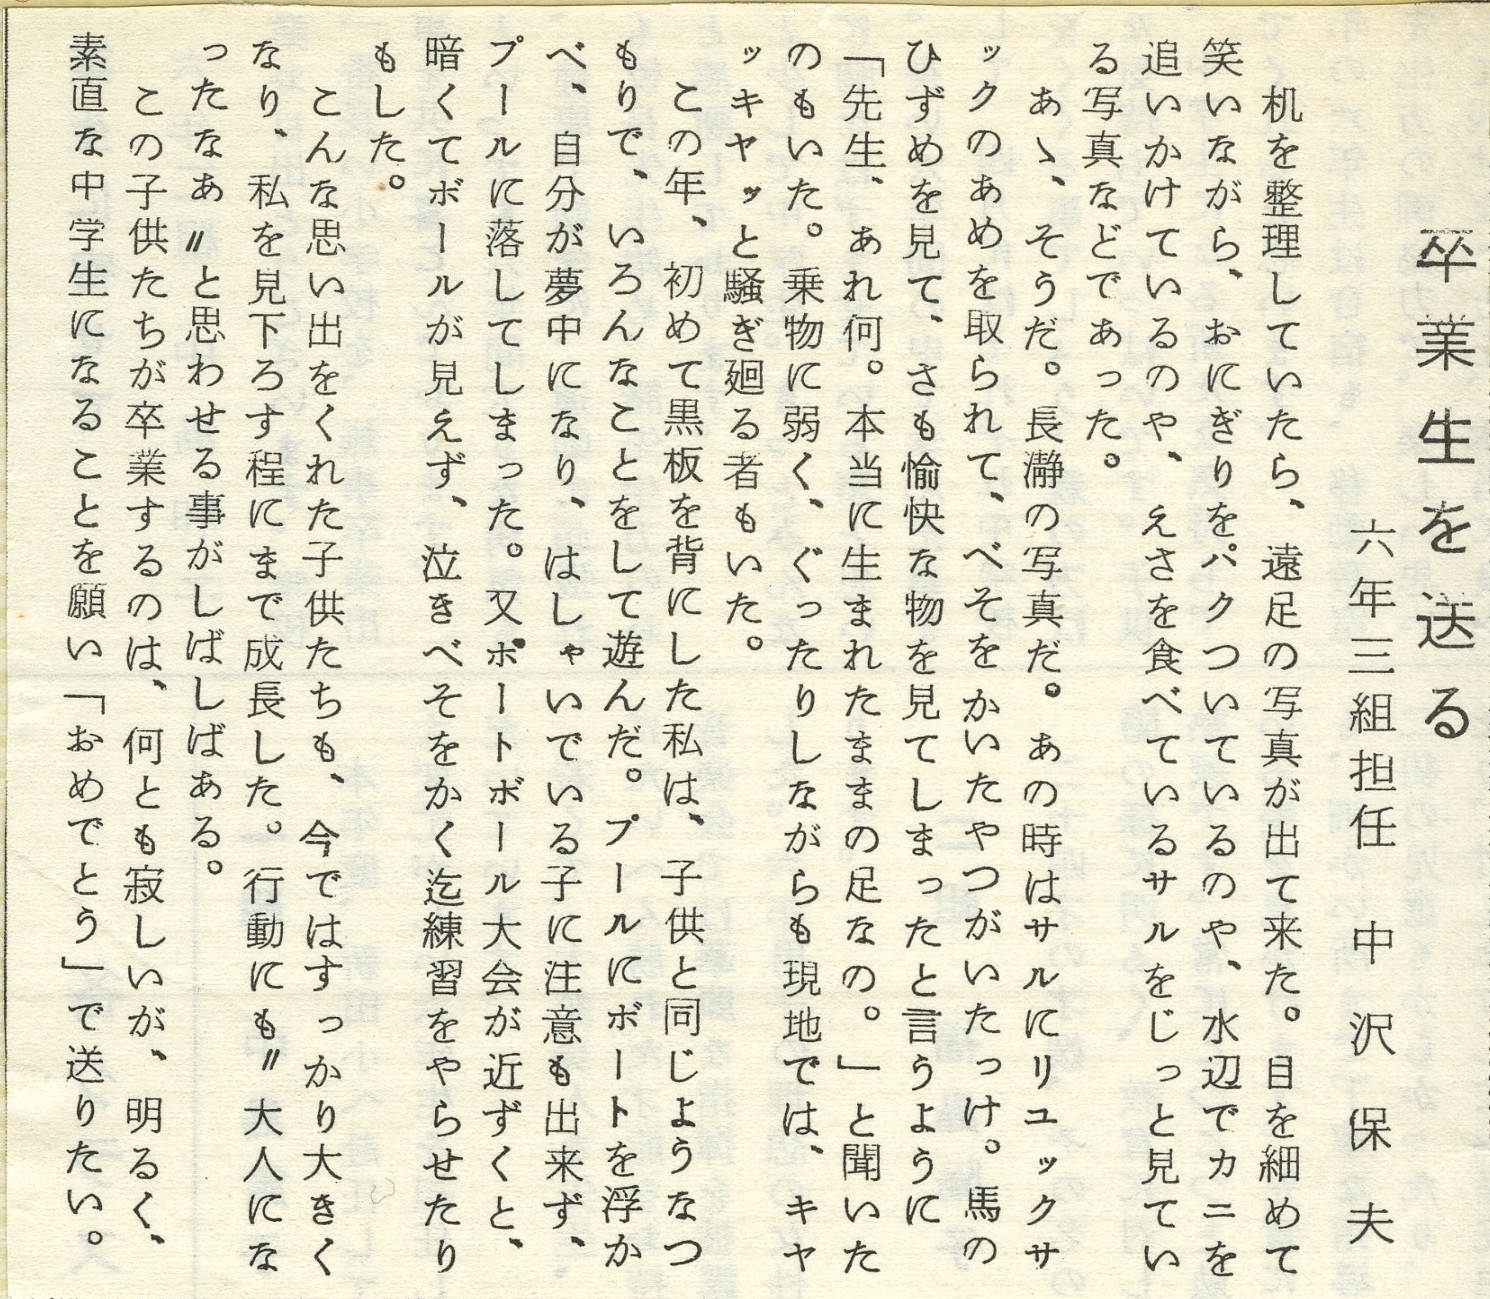 卒業生を送る
六年三組担任　中沢保夫
　机を整理していたら、遠足の写真が出て来た。目を細めて
笑いながら、おにぎりをパクついているのや、水辺でカニを
追いかけているのや、えさを食べているサルをじっと見てい
る写真などであった。
　あゝ、そうだ。長瀞の写真だ。あの時はサルにリュックサ
ックのあめを取られて、べそをかいたやつがいたっけ。馬の
ひずめを見て、さも愉快な物を見てしまったと言うように
「先生、あれ何。本当に生まれたままの足なの。」と聞いた
のもいた。乗物に弱く、ぐったりしながらも現地では、キャ
ッキャッと騒ぎ廻る者もいた。
　この年、初めて黒板を背にした私は、子供と同じようなつ
もりで、いろんなことをして遊んだ。プールにボートを浮か
べ、自分が夢中になり、はしゃいでいる子に注意も出来ず、
プールに落してしまった。又ポートボール大会が近ずくと、
暗くてボールが見えず、泣きべそをかく迄練習をやらせたり
もした。
　こんな思い出をくれた子供たちも、今ではすっかり大きく
なり、私を見下ろす程にまで成長した。行動にも〃大人にな
ったなあ〃と思わせる事がしばしばある。
　この子供たちが卒業するのは、何とも寂しいが、明るく、
素直な中学生になることを願い「おめでとう」で送りたい。